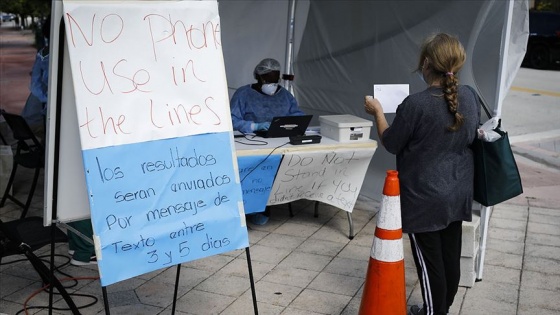 No Phone
Use in
the Lines
los resultados
seran anviados
Por mensaje de
Texto entre
3 y 5 dias
Do Not
Stand in
Line if you